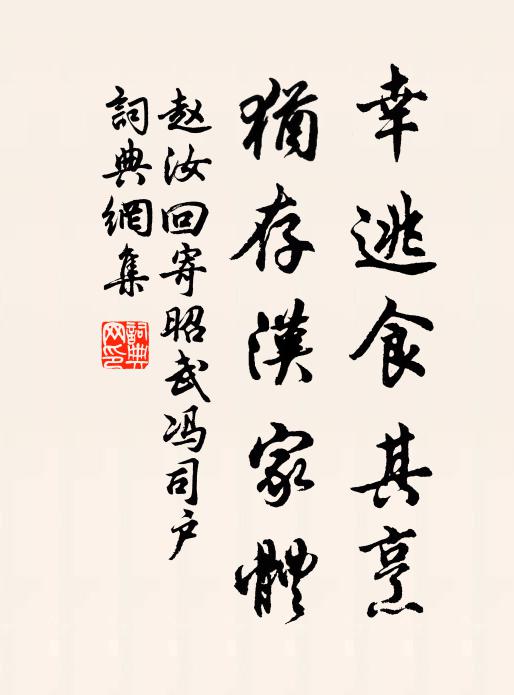 幸逃食其烹
猶存漢家體
赵汝回寄昭武冯司户
詞典網集
詞典
网印